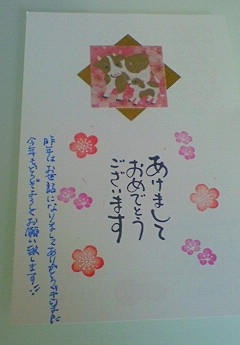 あけまして
おめでとう
ございます
昨年はお世話になりましてありがとうございました
今年もどうぞよろしくお願い致します!!